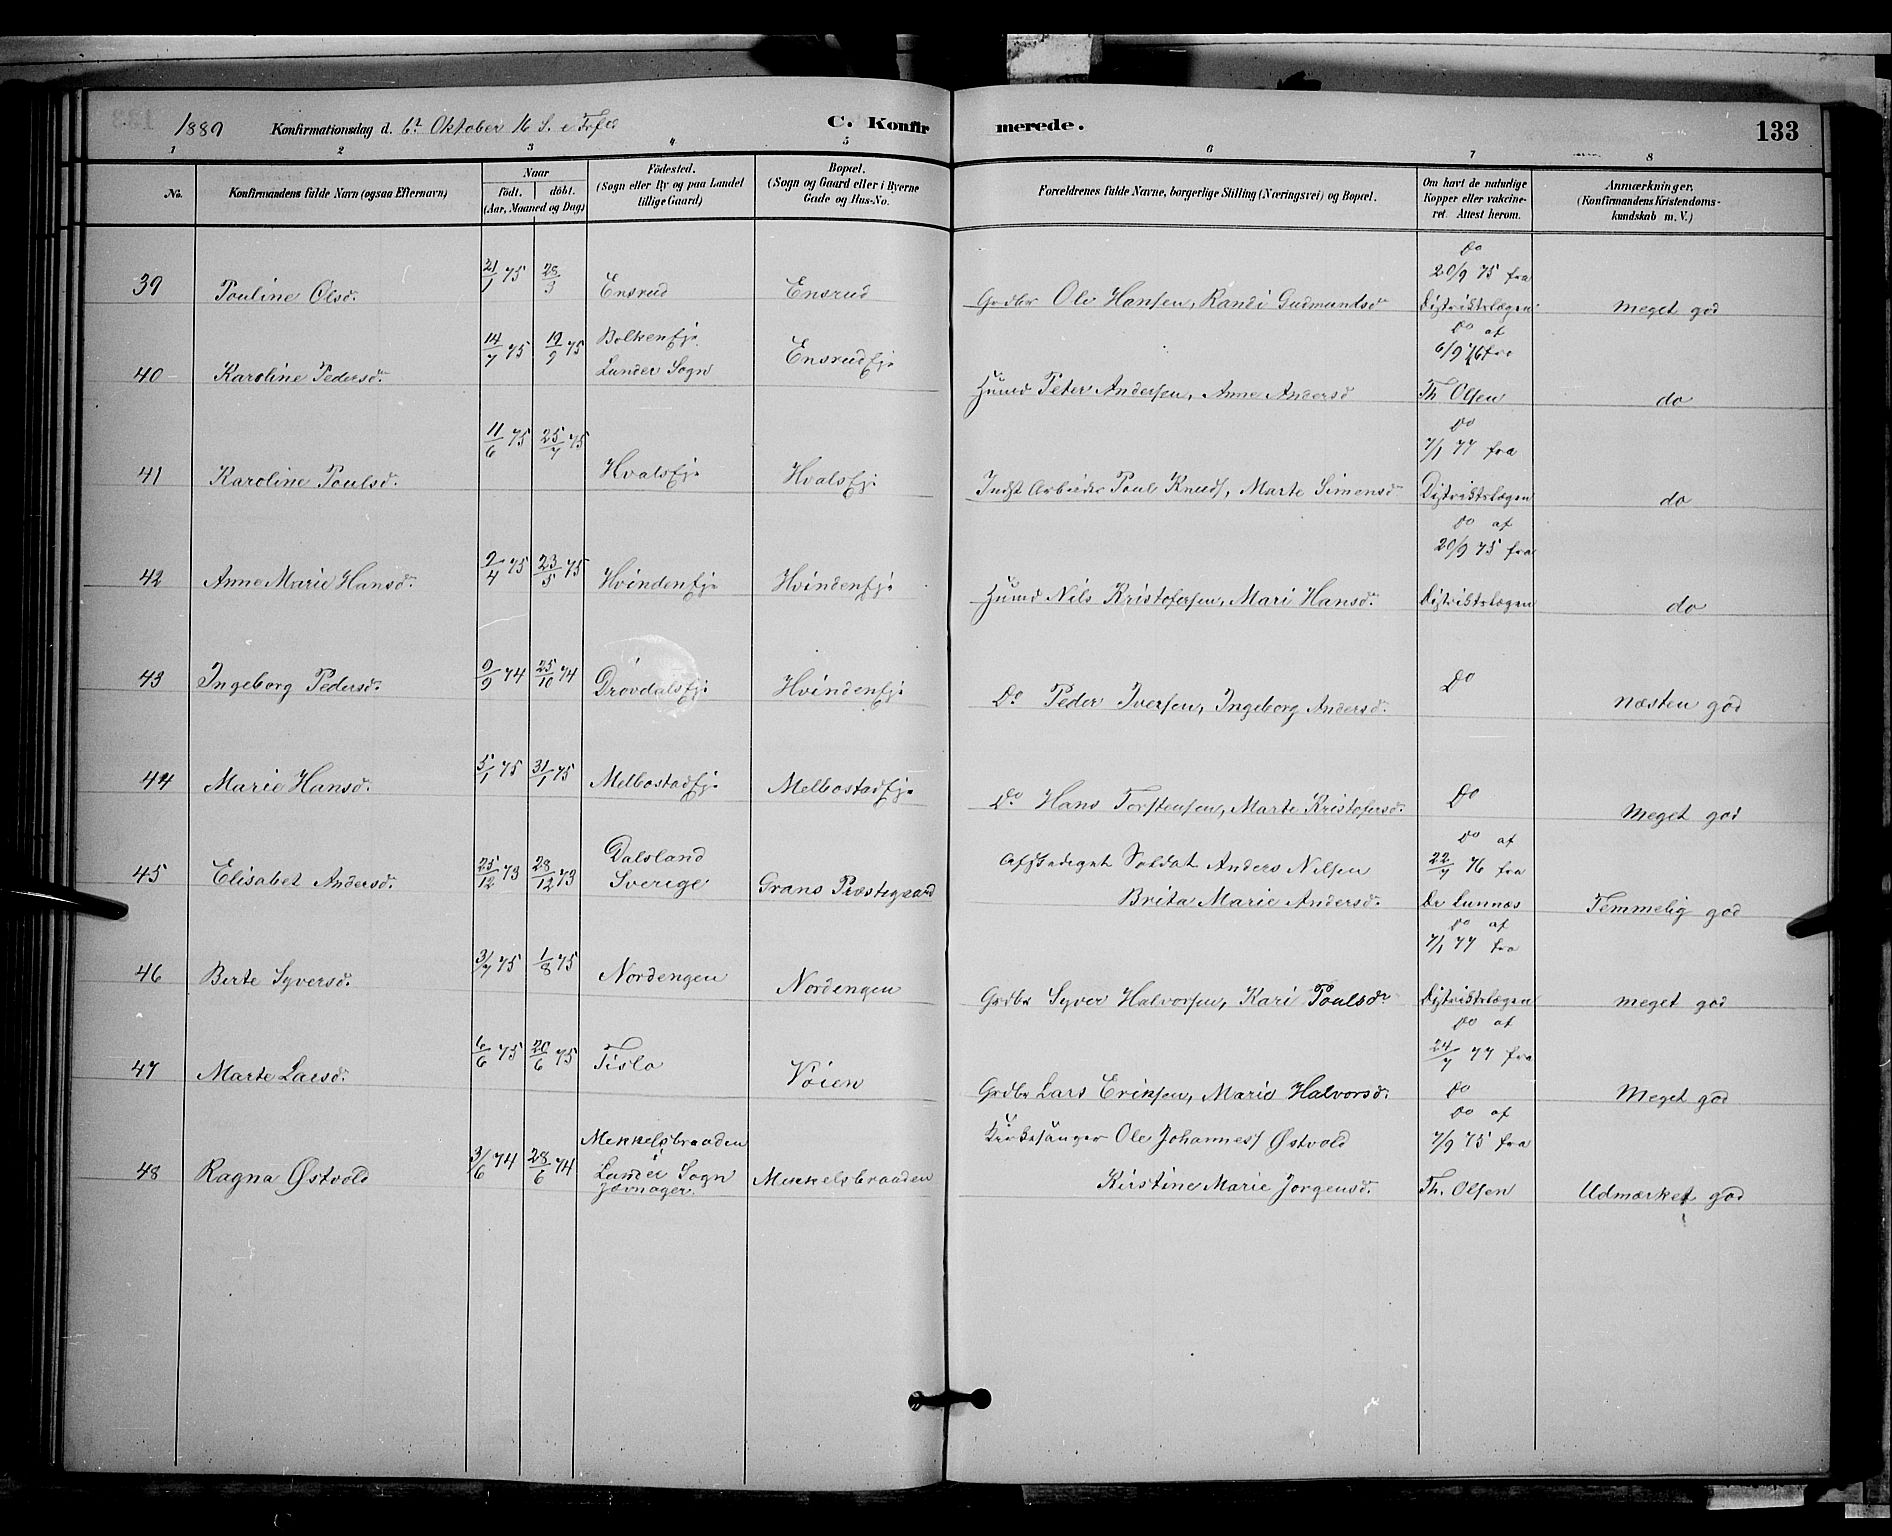 1889 Konfirmationsdag d. 6t Oktober 16 S. e Tref.
C. Konfir merede.
133
1 2 3 4 5 6 7 8
No.
Konfirmandens fulde Navn (ogsaa Efternavn)
Naar
födt. döbt.
(Aar, Maaned og Dag)
Födested.
(Sogn eller By og paa Landet
tillige Gaard)
Bopæl.
(Sogn og Gaard eller i Byerne
Gade og Hus-No.
Forældrenes fulde Navne, borgerlige Stilling (Næringsvei) og Bopæl.
Om havt de naturlige
Kopper eller vakcine-
ret. Attest herom.
Anmærkninger.
(Konfirmandens Kristendoms-
kundskab m. V.)
39 Pouline Olsd. 21/1 75 28/3 Ensrud Ensrud Grdbr Ole Hansen, Randi Gudmundsdr
Do
20/9 75 fra
Distriktslægen
Meget god
40 Karoline Pedersd. 14/7 75 19/9 75
Bolkenej.
Lunder Sogn
Ensrudej. Husmd Peter Andersen, Anne Andersd
Do af
6/9 76 fra
Th. Olsen
do
41 Karoline Poulsd. 11/6 75 25/7 75 Hvalsej. Hvalsej. Indst Arbeider Poul Knuds, Marte Simensdr
Do
7/1 77 fra
Distriktslægen
do
42 Anne Marie Hansd. 9/4 75 23/5 75 Hvindenej. Hvindenej. Husmd Nils Kristofersen, Mari Hansd.
Do af
20/9 75 fra
Distriktslægen
do
43 Ingeborg Pedersd. 9/9 74 25/10 74 Drövdalsej. Hvindenej. Do Peder Iversen, Ingeborg Andersd. Do næsten god
44 Marie Hansd. 5/1 75 31/1 75 Melbostadej. Melbostadej. Do Hans Torstensen, Marte Kristofersd. Do Meget god
45 Elisabet Andersd. 25/12 73 28/12 73
Dalsland
Sverige
Grans Præstegaard
Afskediget Soldat Anders Nilsen
Brita Marie Andersd.
Do af
22/7 76 fra
Dr Lunnæs
Temmelig god
46 Berte Syversd. 3/7 75 1/8 75 Nordengen Nordengen Grdbr Syver Halvorsen, Kari Poulsdr
Do af
7/1 77 fra
Distriktslægen
meget god
47 Marte Larsd. 6/6 75 20/6 75 Tislo Vöien Grdbr Lars Eriksen, Marie Halvorsd.
Do af
24/7 77 fra
Do
Meget god
48 Ragna Østvold 3/6 74 28/6 74
Mekkelsbraaden
Lunder Sogn
Jævnager
Mekkelsbraaden
Kirkesanger Ole Johannes Østvold
Kirstine Marie Jorgensd.
Do af
7/9 75 fra
Th. Olsen
Udmærket god